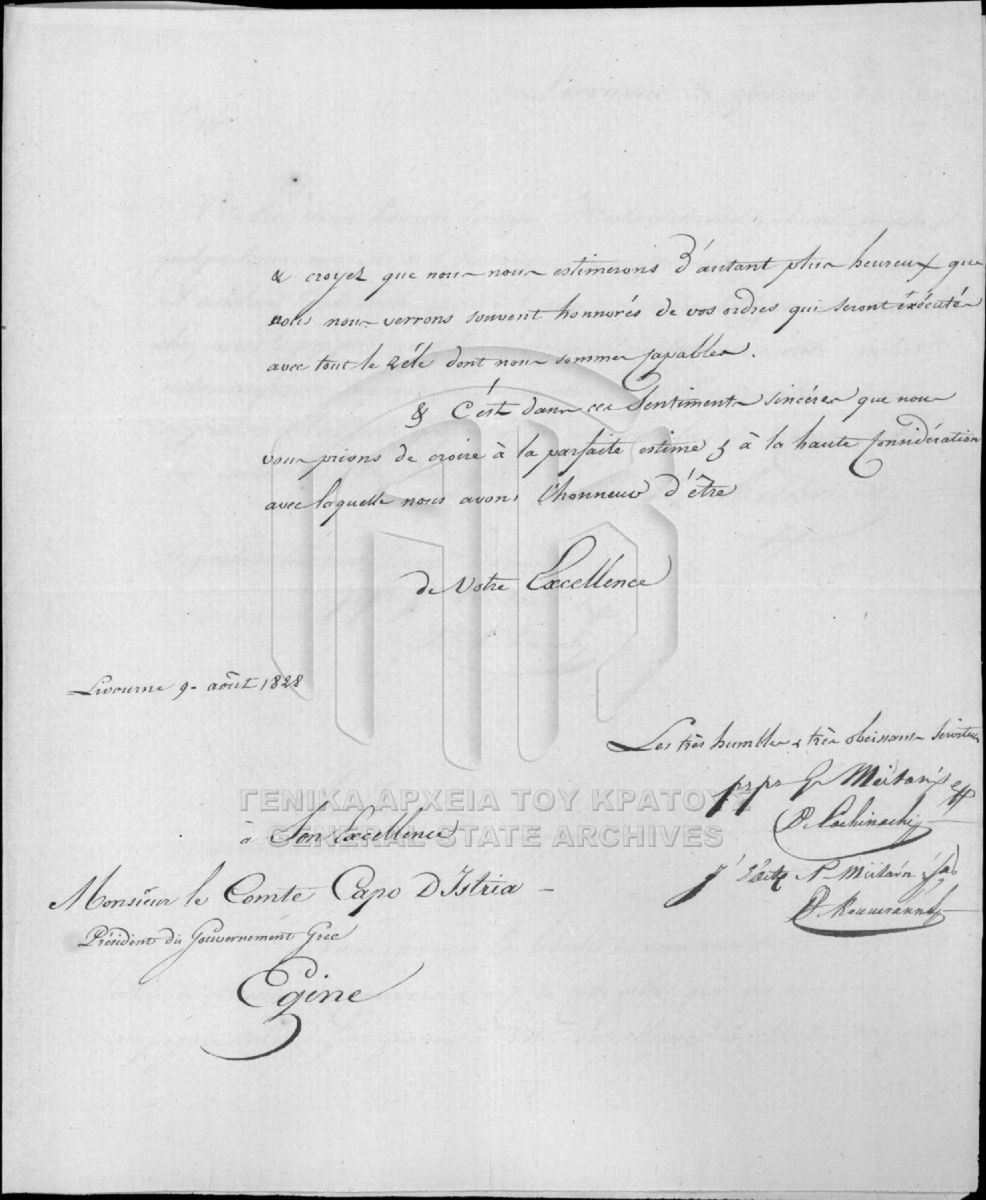 & croyez que nous nous estimerons d'autant plus heureux que
nous nous verrons souvent honnorés de vos ordres qui seront éxécutés
avec tout le zéle dont nous sommes capables.
& C'est dans ces Sentiments sincéres que nous
vous prions de croire à la parfaite estime & à la haute Considération
avec laquelle nous avons l'honneur d'être
de Votre Excellence
Livourne 9. août 1828
Les très humbles & très obeissans Serviteurs
ΓΕΝΙΚΑ ΑΡΧΕΙΑ ΤΟΥ ΚΡΑΤΟΥΣ
GENERAL STATE ARCHIVES
à Son Excellence
Monsieur le Comte Capo D'Istria
Président du Gouvernement Grec
Egine